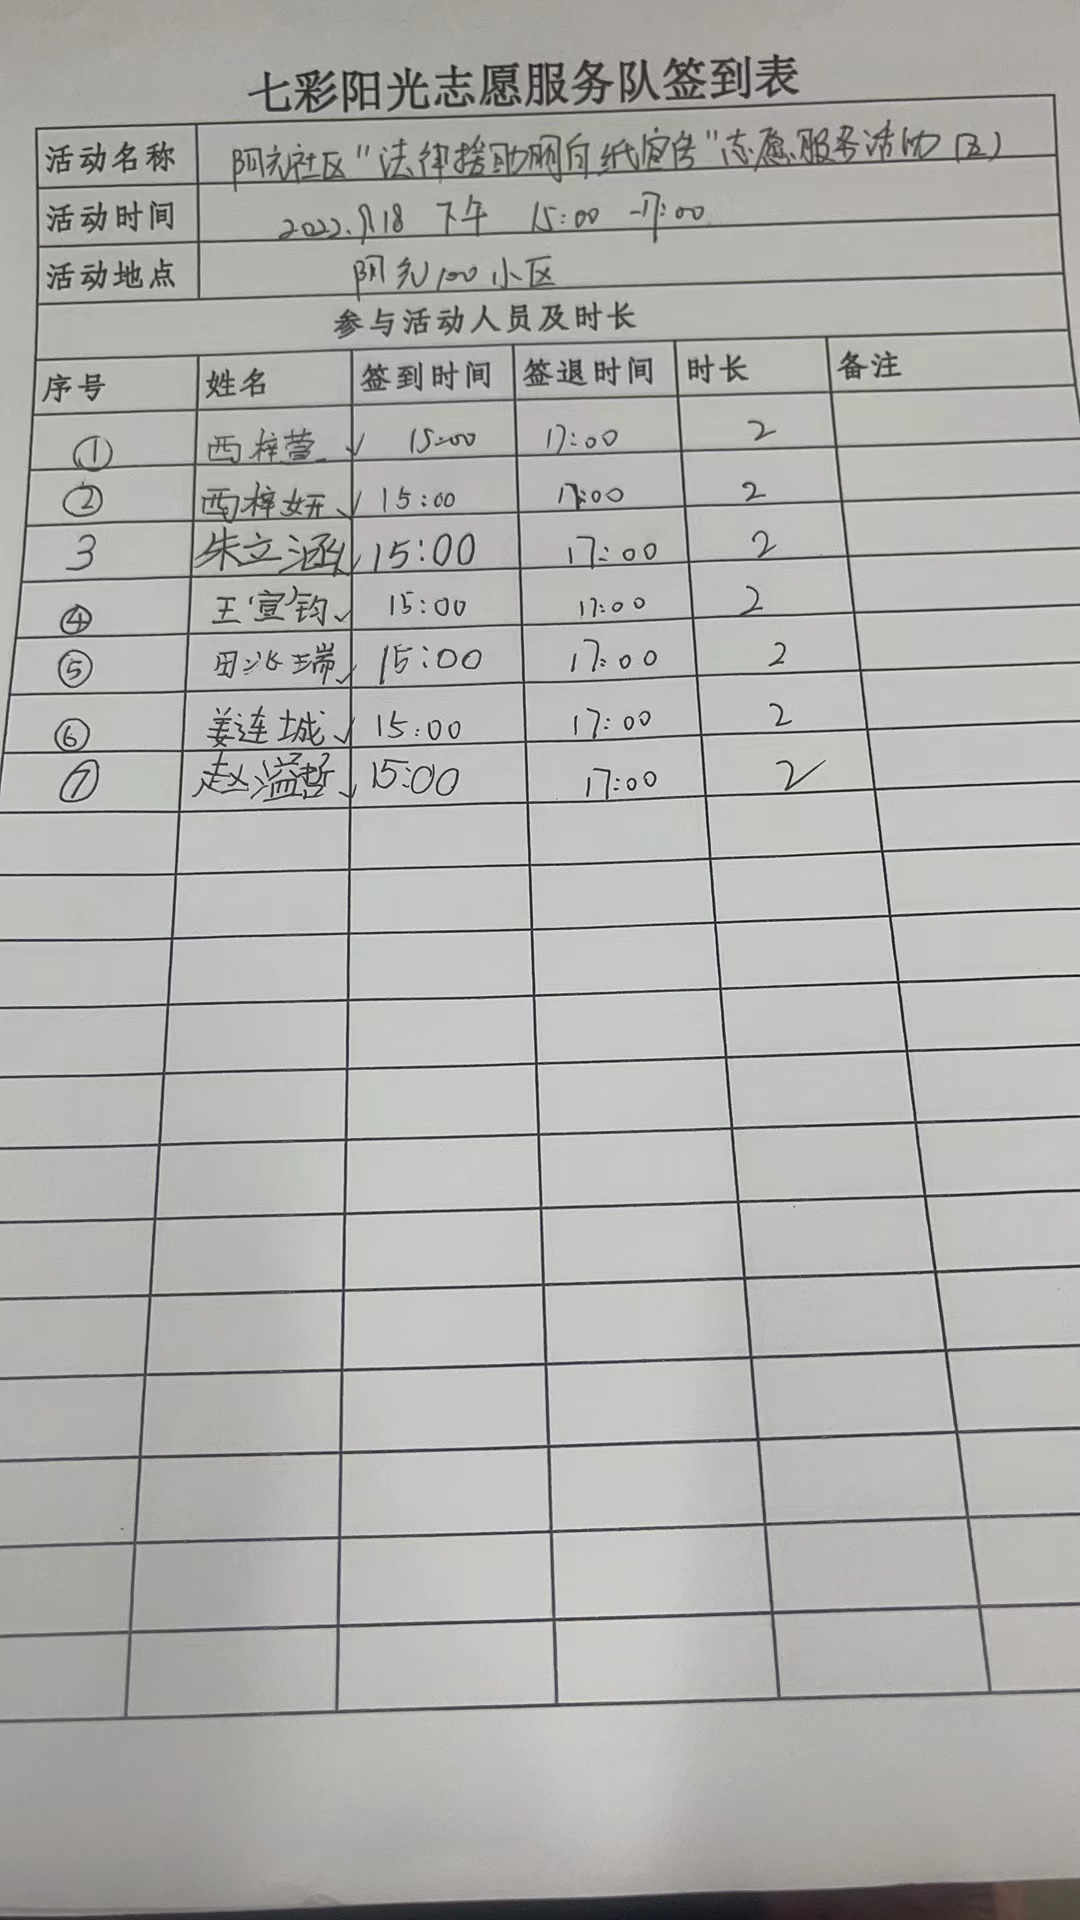 七彩阳光志愿服务队签到表
活动名称 阳光社区"法律援助明白纸宣传"志愿服务活动(五)
活动时间 2022.9.18 下午 15:00-17:00
活动地点 阳光100小区
参与活动人员及时长
序号 姓名 签到时间 签退时间 时长 备注
① 西梓萱 ✓ 15:00 17:00 2
② 西梓妍 ✓ 15:00 17:00 2
3 朱立涵 ✓ 15:00 17:00 2
④ 王宣钧 ✓ 15:00 17:00 2
⑤ 田沁瑞 ✓ 15:00 17:00 2
⑥ 姜连城 ✓ 15:00 17:00 2
⑦ 赵溢哲 ✓ 15:00 17:00 2